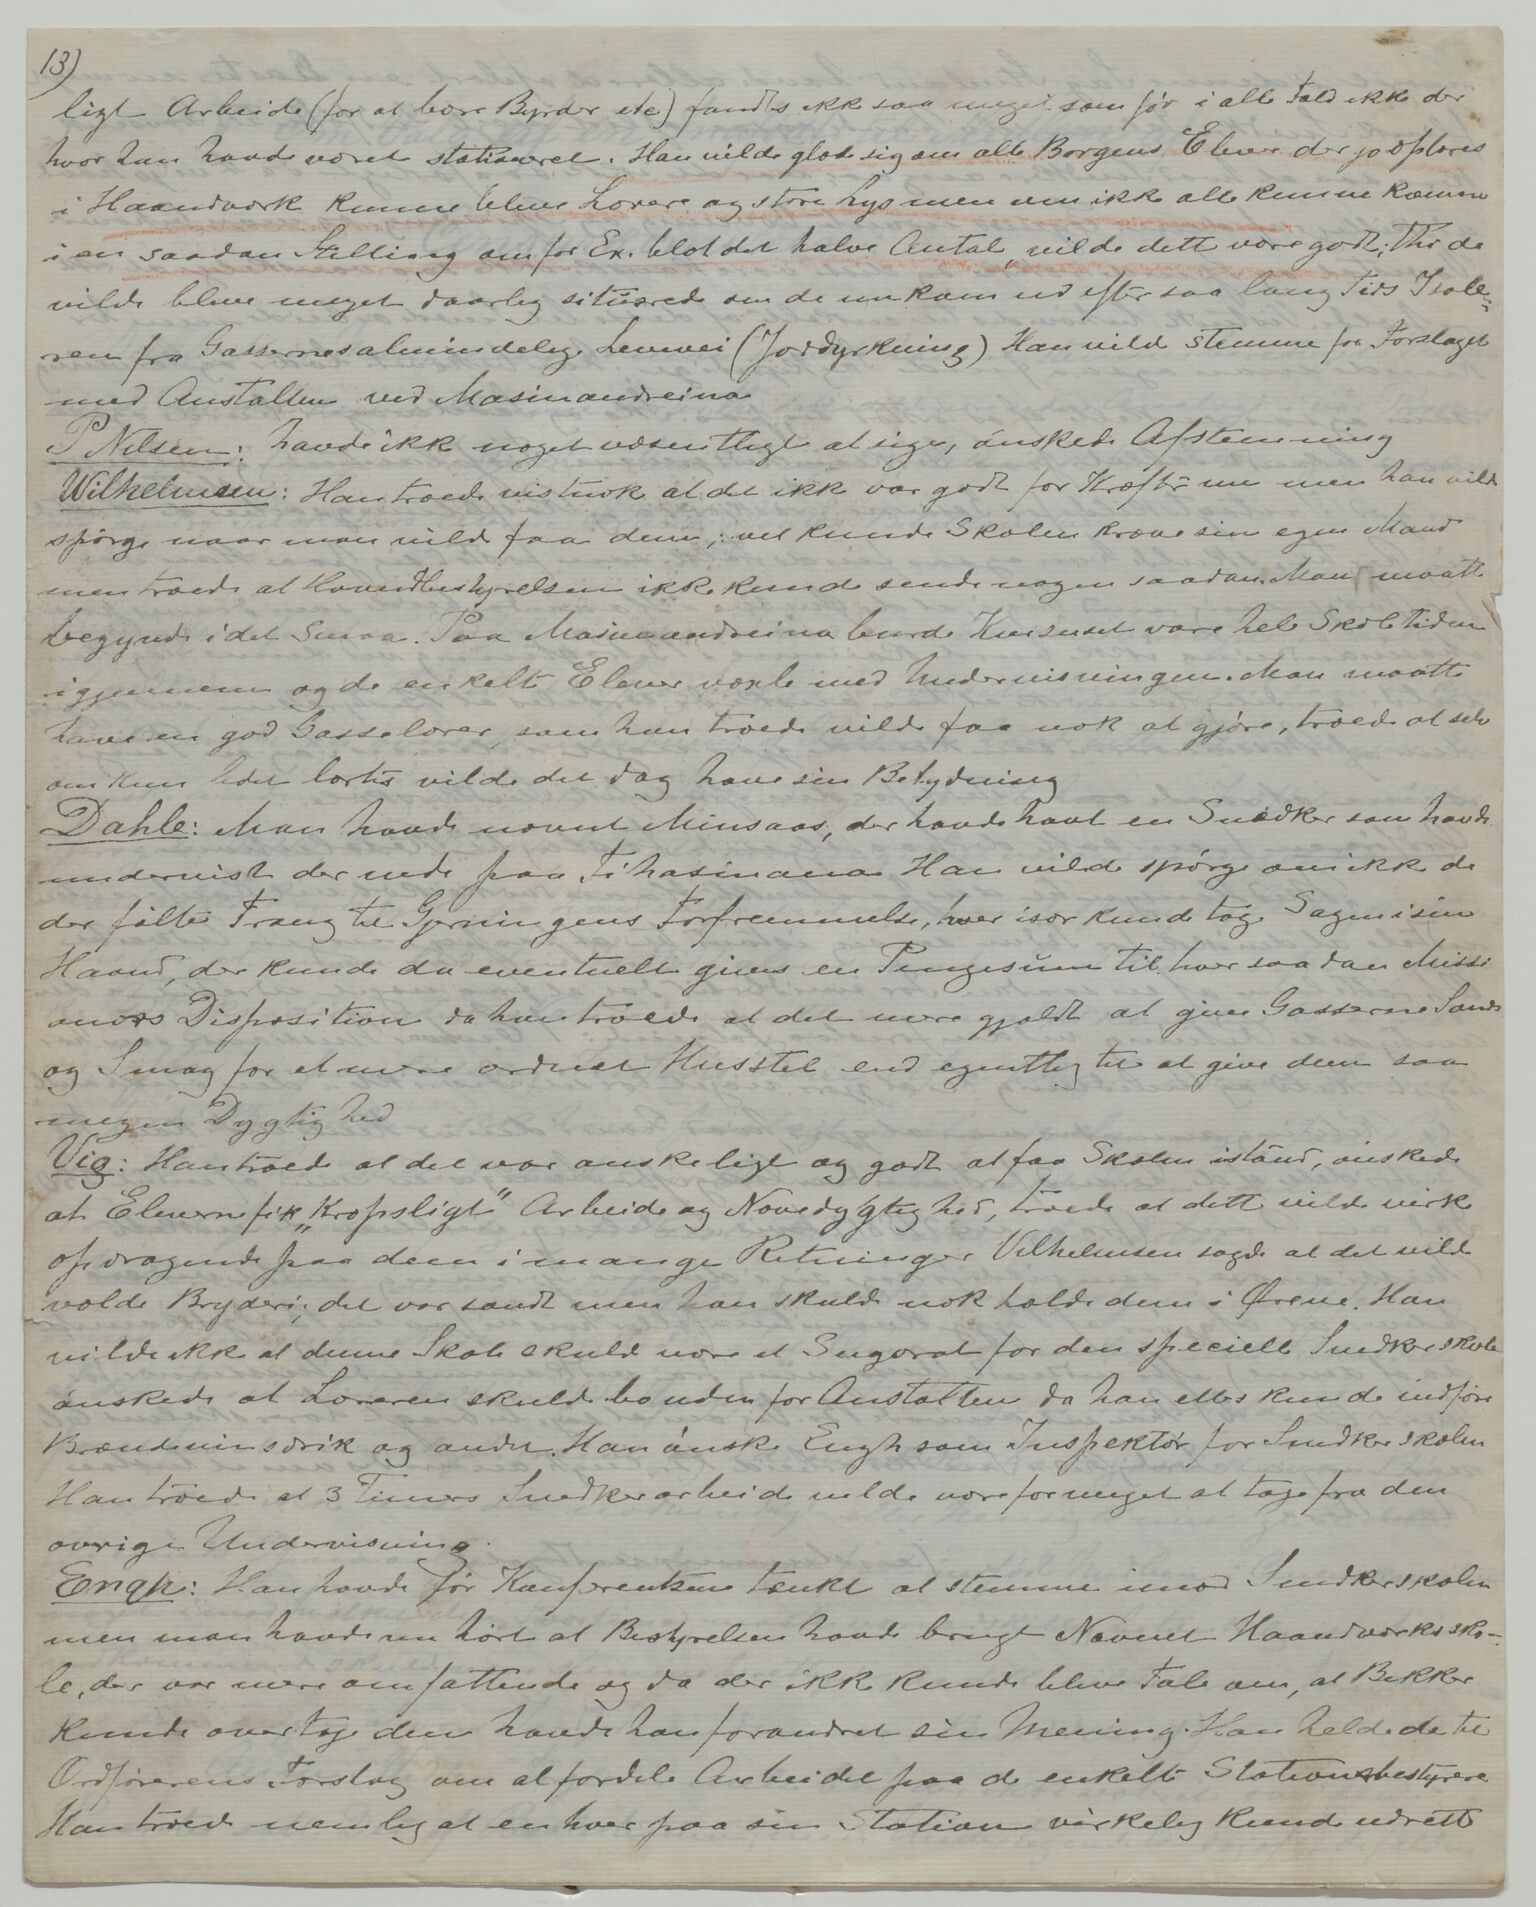 13)
ligt Arbeide (for at bære Byrder etc) fandtes ikke saa meget som før i alle Fald ikke der
hvor han havde været stationeret. Han vilde glæde sig om alle Borgens Elever der jo oplæres
i Haandværk kunne blive Lærere og store Lys men om ikke alle kunne komme
i en saadan Stilling om for Ex. blot det halve Antal, vilde dette være godt; Thi de
vilde blive meget daarlig situerede om de nu kom ud efter saa lang Tids Isole-
ren fra Gassernes almindelige Levevei (Jordyrkning) Han vilde stemme for Forslaget
med Anstalten ved Masinandreina
P Nilsen: havde ikke noget væsentligt at sige, ønskede Afstemning
Wilhelmsen: Han troede vistnok at det ikke var godt for Kræfter nu men han vilde
spørge naar man vilde faa dem; vel kunde Skolen kræve sin egen Mand
men troede at Hovedbestyrelsen ikke kunde sende nogen saadan. Man maatte
begynde i det Smaa. Paa Masinandreina burde Kurseset være hele Skoletiden
igjennem og de enkelte Elever vexle med Undervisningen. Man maatte
have en god Gasselærer, som han troede vilde faa nok at gjøre, troede at selv
om kun lidet lærtes vilde det dog have sin Betydning
Dahle: Man havde nævnt Minsaas, der havde havt en Snedker som havde
undervist der nede paa Fihasinana Han vilde spørge om ikke de
der følte Trang til Gjerningens Forfremmelse, hver især kunde tage Sagen i sin
Haand, der kunde da eventuelt gives en Pengesum til hver saadan Missi
onærs Disposition da han troede at det mere gjaldt at give Gasserne Sands
og Smag for et mere ordnet Husstel end egentlig til at give dem saa
megen Dygtighed
Vig: Han troede at det var ønskeligt og godt at faa Skolen istand, ønskede
at Eleverne fik „Kropsligt" Arbeide og Novedygtighed, troede at dette vilde virke
opdragende paa dem i mange Retninger Vilhelmsen sagde at det vilde
volde Bryderi; det var sandt men han skulde nok holde dem i Ørene. Han
vilde ikke at denne Skole skulde være et Surogat for den specielle Snedkerskole
ønskede at Læreren skulde bo uden for Anstalten da han ellers kunde indføre
Brændevinsdrik og andet. Han ønske Engh som Inspektør for Snedkerskolen
Han troede at 3 Timers Snedkerarbeide vilde være for meget at tage fra den
øvrige Undervisning.
Engh: Han havde før Konferentsen tænkt at stemme imod Snedkerskolen
men man havde nu hørt at Bestyrelsen havde brugt Navnet Haandværkssko-
le, der var mere omfattende og da der ikke kunde blive Tale om, at Bekker
kunde overtage den havde han forandret sin Mening. Han helde da til
Ordførerens Forslag om at fordele Arbeidet paa de enkelte Stationsbestyrere
Han troede nemlig at en hver paa sin Station virkelig kunde udrette